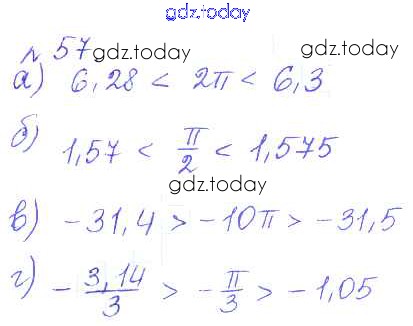 gdz.today
№ 57 gdz.today gdz.today
а) 6,28 < 2π < 6,3
б) 1,57 < π/2 < 1,575
gdz.today
в) -31,4 > -10π > -31,5
г) -3,14/3 > -π/3 > -1,05
gdz.today